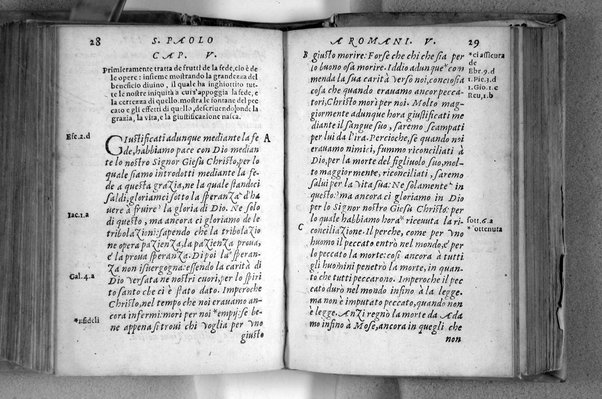 28 S. PAOLO
CAP. V.
Primieramente tratta de frutti de la fede, cio è de
le opere: insieme mostrando la grandezza del
beneficio divino, il quale ha inghiottito tut-
te le nostre iniquità a cui s'appoggia la fede, e
la certezza di quello. mostra le fontane del pec
cato e gli effetti di quello, descrivendo onde la
grazia, la vita, e la giustificazione nasca.
Esc. 2. d
GIustificati adunque mediante la fe A
de, habbiamo pace con Dio median
te lo nostro Signor Giesu Christo, per lo
quale siamo introdotti mediante la fe-
de a questa grazia, ne la quale stando ci
saldi, gloriamci sotto la speranza d ha
uere à fruire la gloria di Dio. Ne solo
Iac. 1. a
di questo, ma ancora ci gloriamo de le
tribolazioni: sapendo che la tribolazio
ne opera pazienza, la pazienza proua,
e la proua speranza. Di poi la speran-
za non isuergogna: essendo la carità di
Gal. 4. a
Dio versata ne nostri cuori, per lo spiri
to santo che ci è stato dato. Imperoche
Christo, nel tempo che noi erauamo an-
cora infermi: morì per noi *empij: se be-
*ifideli
ne appena si troui chi voglia per vno
giusto
A ROMANI. V. 29
B giusto morire: Forse che chi che sia per
lo buono osa morire. Iddio adunque *com
*ci assicura
de
menda la sua carità verso noi, conciosia
Ebr. 9. d
cosa che quando erauamo ancor pecca-
1. Pie. 3. d
tori, Christo morì per noi. Molto mag
1. Gio. 1. c
giormente adunque hora giustificati me
Rcu, 1. b
diante il sangue suo, saremo scampati
per lui da l'ira. Percioche, se quando noi
erauamo nimici, fummo riconciliati à
Dio, per la morte del figliuolo suo, mol-
to maggiormente, riconciliati, saremo
salui per la vita sua: Ne solamente in
questo: ma ancora ci gloriamo in Dio
per lo Signor nostro Giesu Christo: per
lo quale habbiamo hora* riceuuta la ri-
sott. 6. a
C conciliazione. Il perche, come per vno
*ottenuta
huomo il peccato entrò nel mondo, e per
lo peccato la morte: così ancora à tutti
gli huomini penetrò la morte, in quan-
to che tutti peccarono. Imperoche il pec
cato durò nel mondo infino à la legge.
ma non è imputato peccato, quando non
è legge. Anzi regnò la morte da Ada
mo infino à Mosè, ancora in quegli che
non